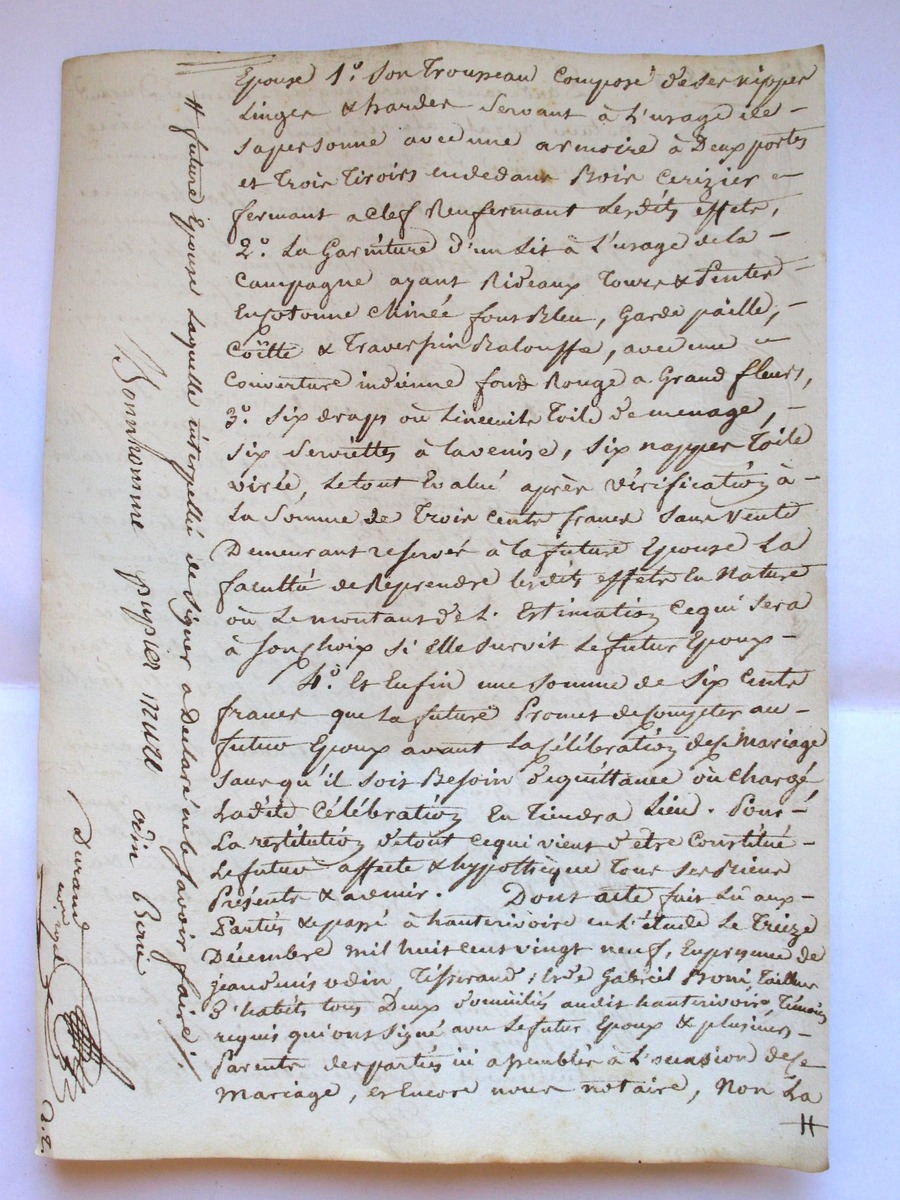 Epouse 1.° Son Trousseau Composé de ses nippes
Linges & hardes Servant à L'usage de –
sa personne avec une armoire à Deux portes
et Trois Tiroirs endedans Bois Cerizier –
fermant a clef Renfermant Lesdits effets,
2.° La Garniture d'un Lit à L'usage de la –
Campagne ayant Rideaux Tours & Pentes –
En Cotonne Chinée fond Bleu, Garde paille, –
Coëtte & Traverpin Balouffe, avec une –
Couverture indienne fond Rouge a Grand fleurs,
3.° Six draps ou Linceuils Toile de menage, –
Six Serviettes à la venise, Six nappes Toile
virée, Le tout Evalué après vérification à –
La Somme de Trois Cents francs Sans Vente
Demeurant reservée à la future Epouse La
faculté de Reprendre lesdits effets En Nature
ou Le montant de L'Estimation Ce qui Sera
à Son choix Si elle Survit Le futur Epoux –
4.° Et Enfin une Somme de Six Cents
francs que La future Promet de Compter au –
futur Epoux avant La Célébration de Ce Mariage
Sans qu'il Soit Besoin de quittance ou Chargé
Ladite Célébration En Tiendra Lieu. Pour –
La restitution de tout Ce qui vient d'être Constitué –
Le futur affecte & hypothèque Tous Ses Biens
Présents & avenir. Dont acte fait Lu aux –
Parties & passé à hauterivoire en L'étude Le Treize
Décembre mil huit cent vingt neuf, En présence de
jean denis odin, Tisserand, & de Gabriel Boni, Tailleur
d'habits tous Deux domiciliés audit hauterivoire, Témoins
requis qui ont Signé avec Le futur Epoux & plusieurs –
Parents des parties ici assemblés à L'occasion de Ce
Mariage, et Encore nous notaire, Non La
#
# future Epouse Laquelle interpellée de Signer a Déclaré ne le Savoir faire ./.
Bonhomme pupier odin Boni
Durand